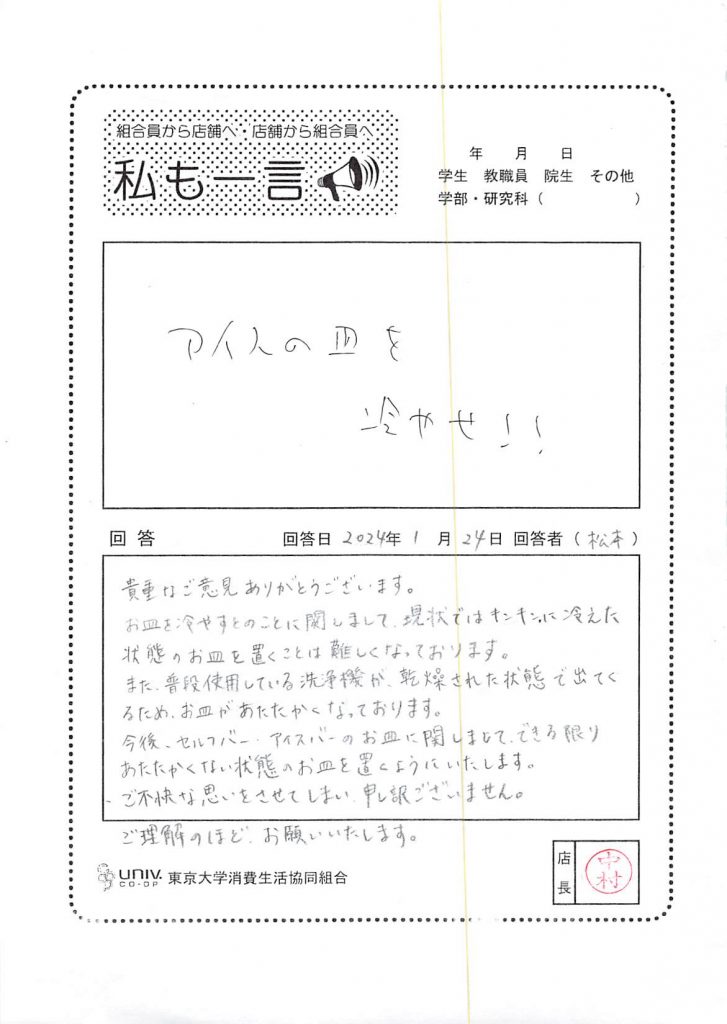 組合員から店舗へ・店舗から組合員へ
私も一言
年 月 日
学生 教職員 院生 その他
学部・研究科（ ）
アイスの皿を
冷やせ!!
回答 回答日 2024年 1月 24日 回答者（松本）
貴重なご意見ありがとうございます。
お皿を冷やすとのことに関しまして、現状ではキンキンに冷えた
状態のお皿を置くことは難しくなっております。
また、普段使用している洗浄機が、乾燥された状態で出てく
るため、お皿があたたかくなっております。
今後、セルフバー・アイスバーのお皿に関しまして、できる限り
あたたかくない状態のお皿を置くようにいたします。
ご不快な思いをさせてしまい、申し訳ございません。
ご理解のほど、お願いいたします。
UNIV. CO-OP 東京大学消費生活協同組合
店長 中村